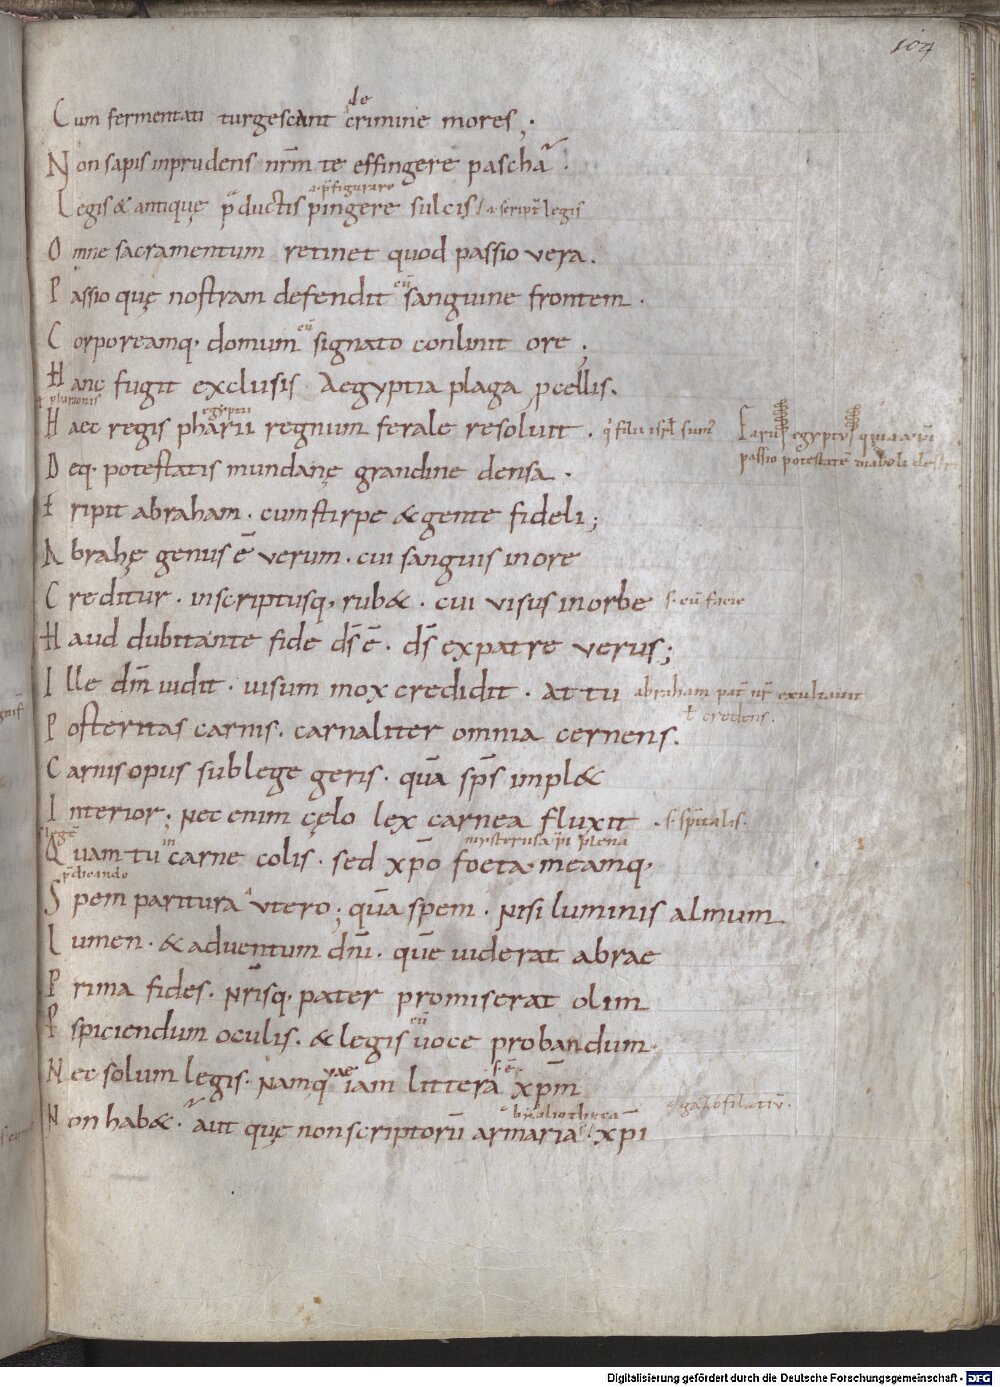 104
de
Cum fermentati turgescant crimine mores.
Non sapis inprudens nr̄m te effingere paschā.
.i. p̄figurare
Legis & antiquę p̄ductis pingere sulcis .i. script̄ legis
Omne sacramentum retinet quod passio vera.
eū
Passio quę nostram defendit sanguine frontem.
eū
Corporeamq; domum signato conlinit ore;
Hanc fugit exclusis Aegyptia plaga ꝓcellis.
pharionis egyptii
Haec regis pharii regnum ferale resoluit.
Deq; potestatis mundanę grandine densa.
Eripit abraham. cum stirpe & gente fideli;
Abrahę genus ē verum. cui sanguis in ore
Creditur. inscriptusq; rub&. cui visus in orbe s. eū facie
Haud dubitante fide d̄s ē. d̄s ex patre verus;
Ille dn̄m uidit. uisum mox credidit. At tu abraham pat̄ nr̄ exultauit
ł credens.
Posteritas carnis. carnaliter omnia cernens.
Carnis opus sub lege geris. quā sp̄s impl&
Interior; Nec enim cęlo lex carnea fluxit. s. sp̄italis.
legē in
Quam tu carne colis. sed xp̄o foeta. meamq;
p̄dicando a
Spem paritura utero; quā spem. Nisi luminis almum
Lumen. & aduentum dn̄i. quē uiderat abrae
Prima fides. Nr̄isq; pater promiserat olim
eū
Aspiciendum oculis. & legis uoce probandum.
vae s. ē
Nec solum legis. Namq; iam litterā xp̄m
bybliotheca
Non hab&. aut quę non scriptorū armaria xp̄i
gazofilatiū.
Digitalisierung gefördert durch die Deutsche Forschungsgemeinschaft - DFG